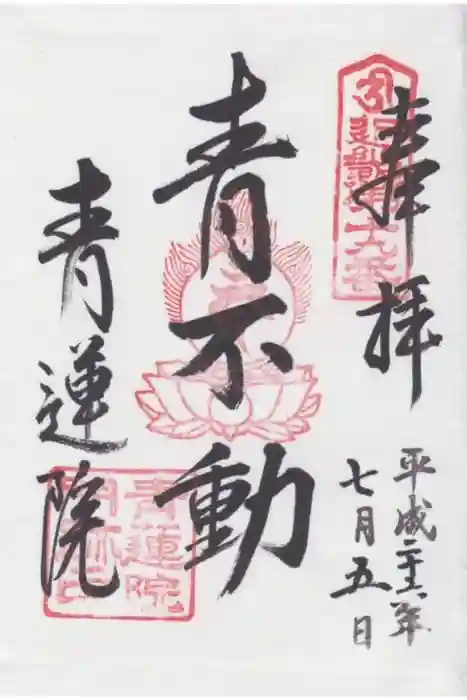 奉拝
近畿第十九番
平成二十六年
七月五日
青不動
青蓮院
青蓮院
門跡印